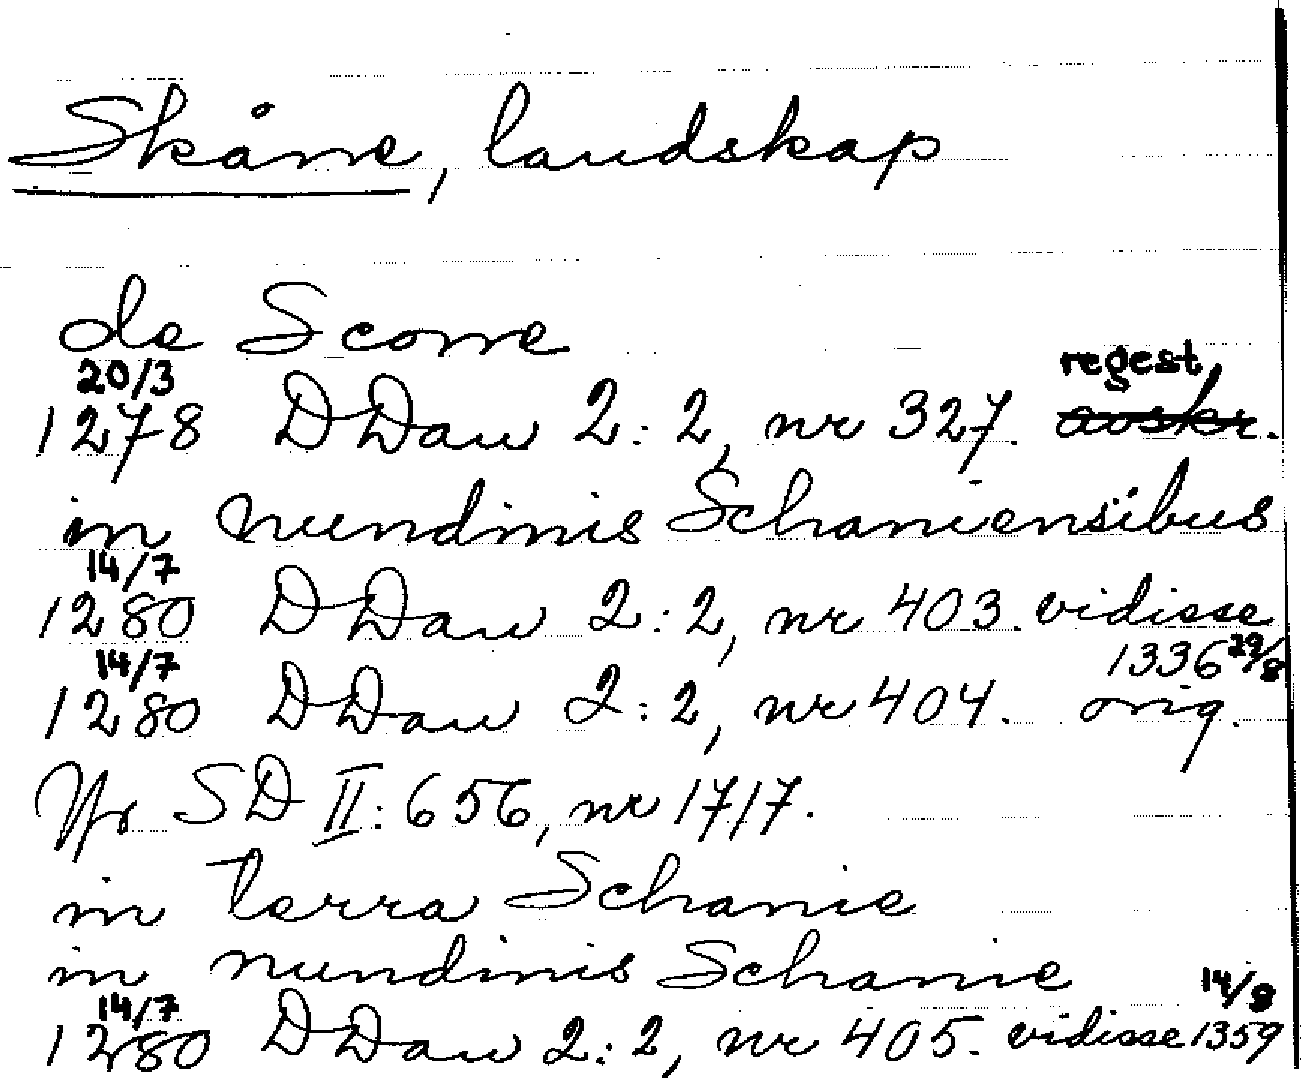 Skåne, landskap
de Scone
20/3 regest,
1278 DDan 2:2, nr 327. avskr.
in nundinis Schaniensibus
14/7
1280 DDan 2:2, nr 403. vidisse
14/7 1336 29/8
1280 DDan 2:2, nr 404. orig.
Jfr SD II: 656, nr 1717.
in terra Schanie
in nundinis Schanie
14/7 14/8
1280 DDan 2:2, nr 405. vidisse 1359